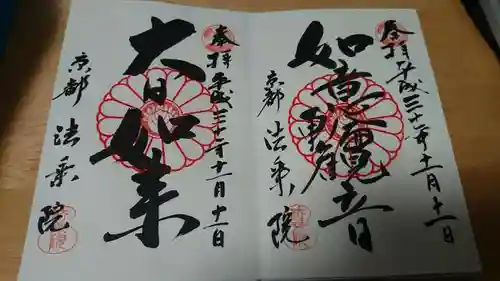 奉拝 平成三十年十一月十一日
如意輪観世音
京都 法乗院
奉拝 平成三十年十一月十一日
大日如来
京都 法乗院